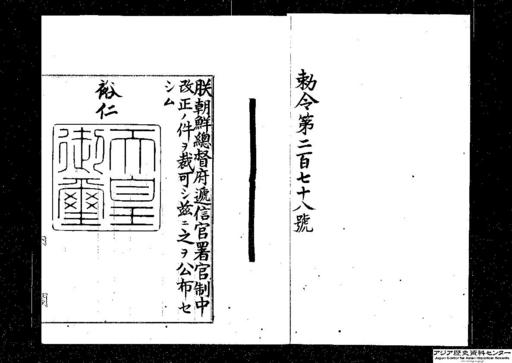 勅令第二百七十八號
朕朝鮮總督府遞信官署官制中
改正ノ件ヲ裁可シ茲ニ之ヲ公布セ
シム
裕仁
天皇
御璽
アジア歴史資料センター
Japan Center for Asian Historical Records